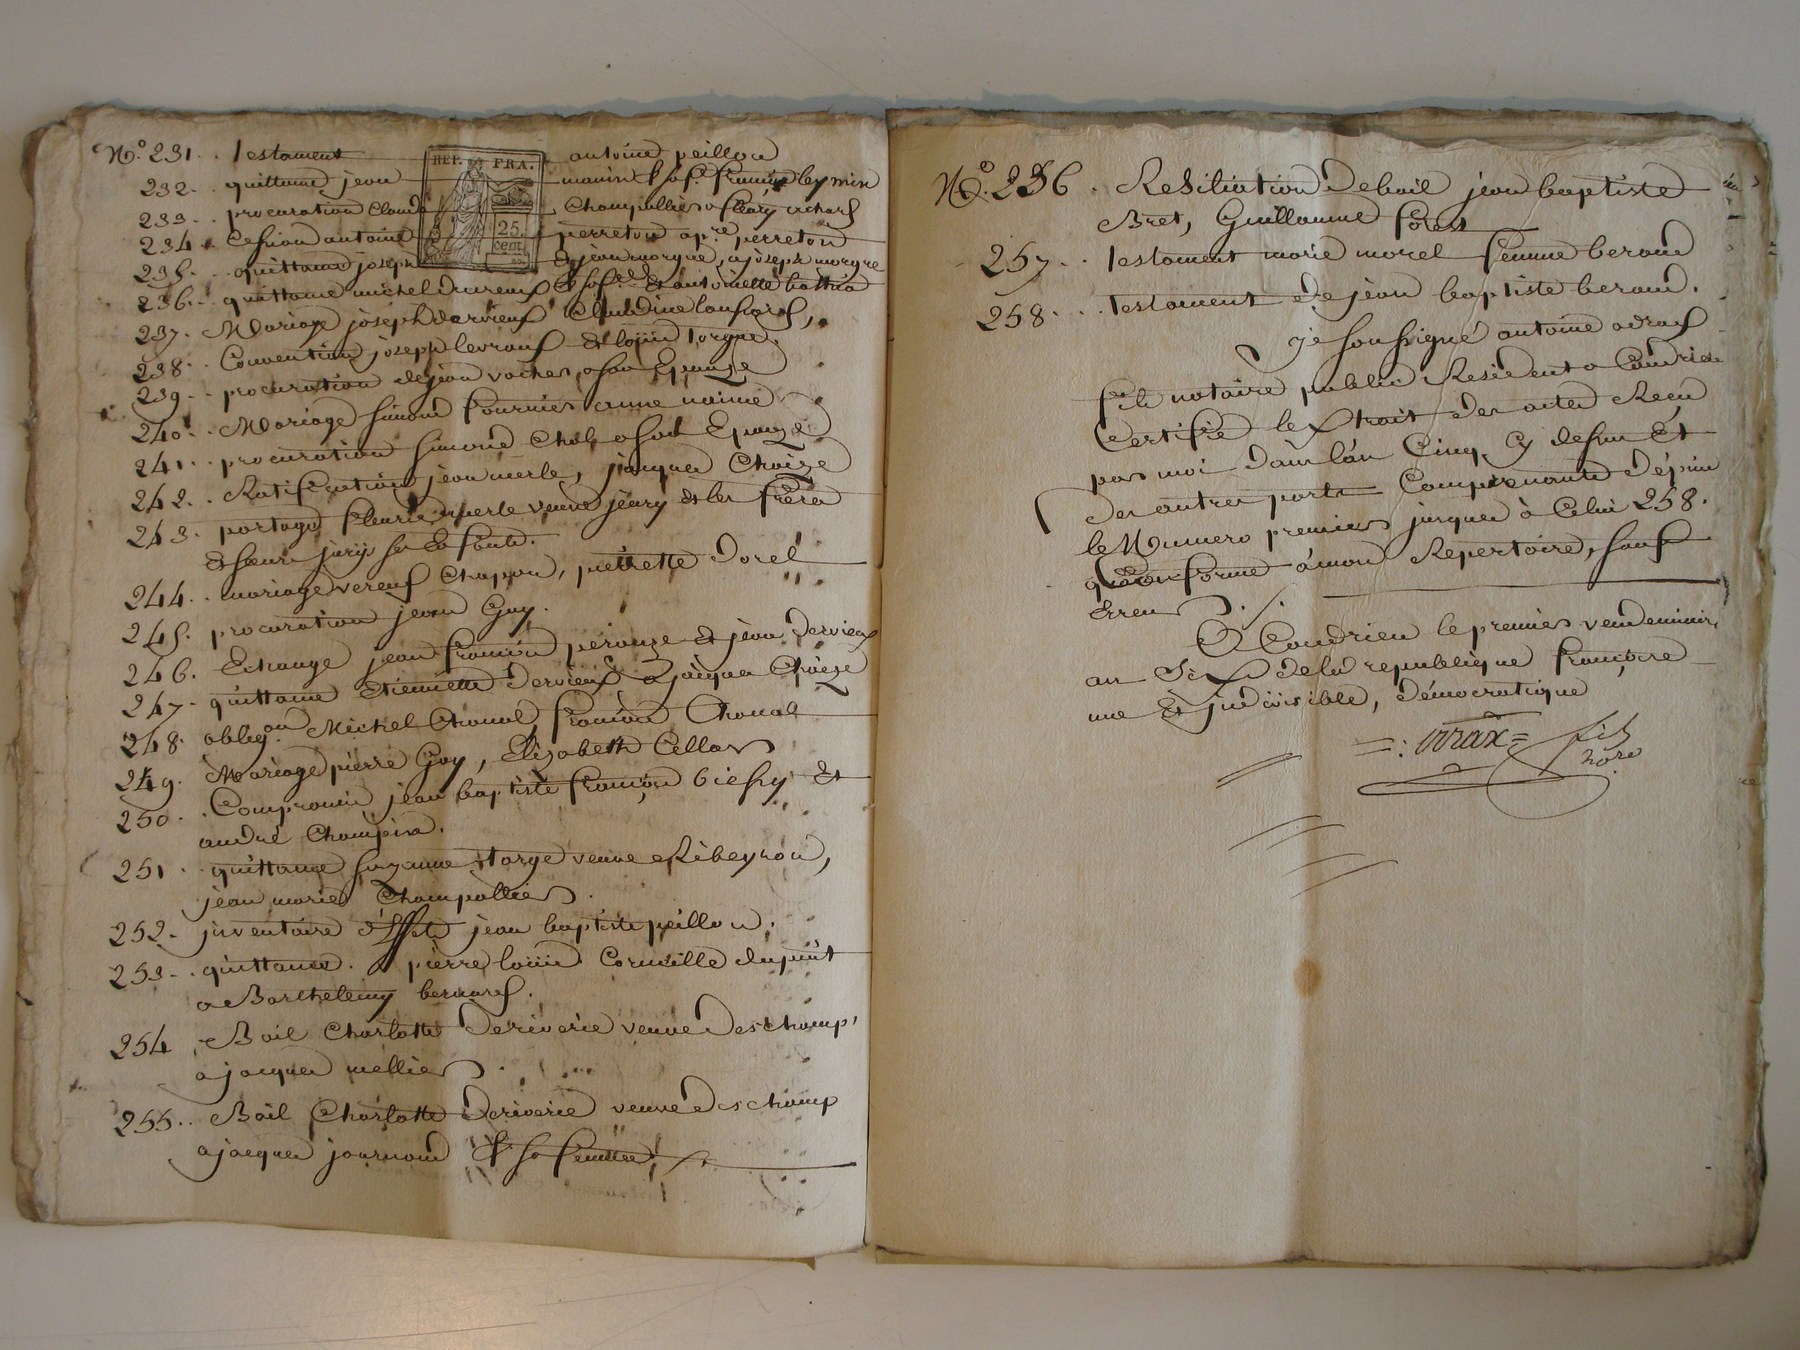 N.º 231. Testament antoine peillon
REP. FRA.
25. cent.
232. quittance jean
233. procuration Claude
234. Cession antoine perreton perreton
235. quittance joseph & jean morgue, a joseph morgue
236. quittance michel & antoinette
237. Mariage joseph dervieux Claudine
238. Convention joseph levraux & louis
239. procuration de jean a son Epouze
240. Mariage simond fournier anne
241. procuration Chol a son Epouze
242. Ratification jean merle, jacques Choize
243. partage fleurie merle veuve jeury & les frere
& soeur
244. mariage Chapon, pierrette Dorel
245. procuration jean Guy.
246. Echange jean françois perouze & jean dervieux
247. quittance Etiennette dervieux a jacques Choize
248. oblig.on Michel Chonal françois Chonal
249. Mariage pierre Guy, Elizabeth Cellar
250. Compromis jean baptiste françois & 
andré
251. quittance suzanne veuve Ribeyron,
jean marie Champallier.
252. inventaire d'Effets jean baptiste peillon.
253. quittance. pierre louis Corneille dupuit
a Barthelemy bernard.
254 Bail Charlotte Deriverie veuve Deschamp
a jacques mellier
255. Bail Charlotte deriverie veuve Deschamp
a jacques journoud & sa femme,
N.º 256. Resiliation de bail jean baptiste
Bret, Guillaume forest
257. Testament marie morel femme beraud
258. Testament de jean baptiste beraud.
je soussigné antoine
fils notaire public Resident a Condrieu
Certifie le xtrait des actes Reçu
par moi dans l'an Cinq, cy dessus Et
des autres parts Comprenants depuis
le Numero premier jusques à Celui 258.
conforme à mon Repertoire, sauf
Erreur
A Condrieu le premier vendemiaire
an Six de la republique françoise
une Et indivisible, démocratique
fils